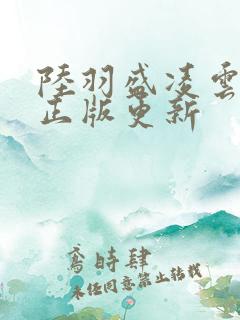 陸羽盛凌雲
正版更新
鸢時肆
未经同意禁止转载